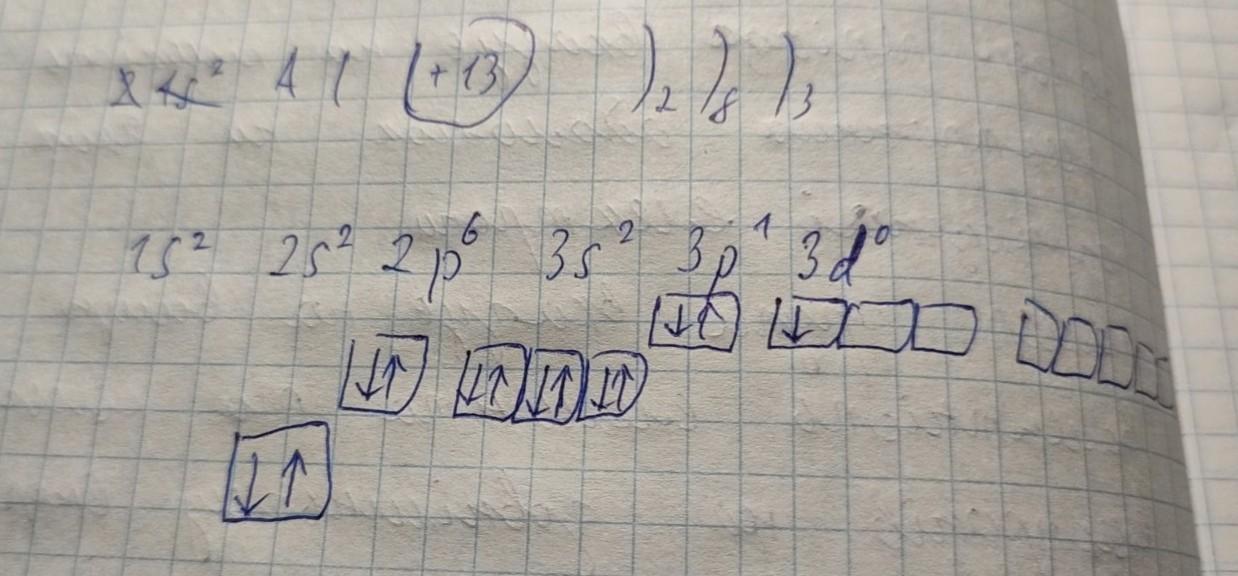 Al (+13) )2 )8 )3
1s² 2s² 2p⁶ 3s² 3p¹ 3d⁰
↓↑ ↓
↓↑ ↓↑ ↓↑ ↓↑
↓↑